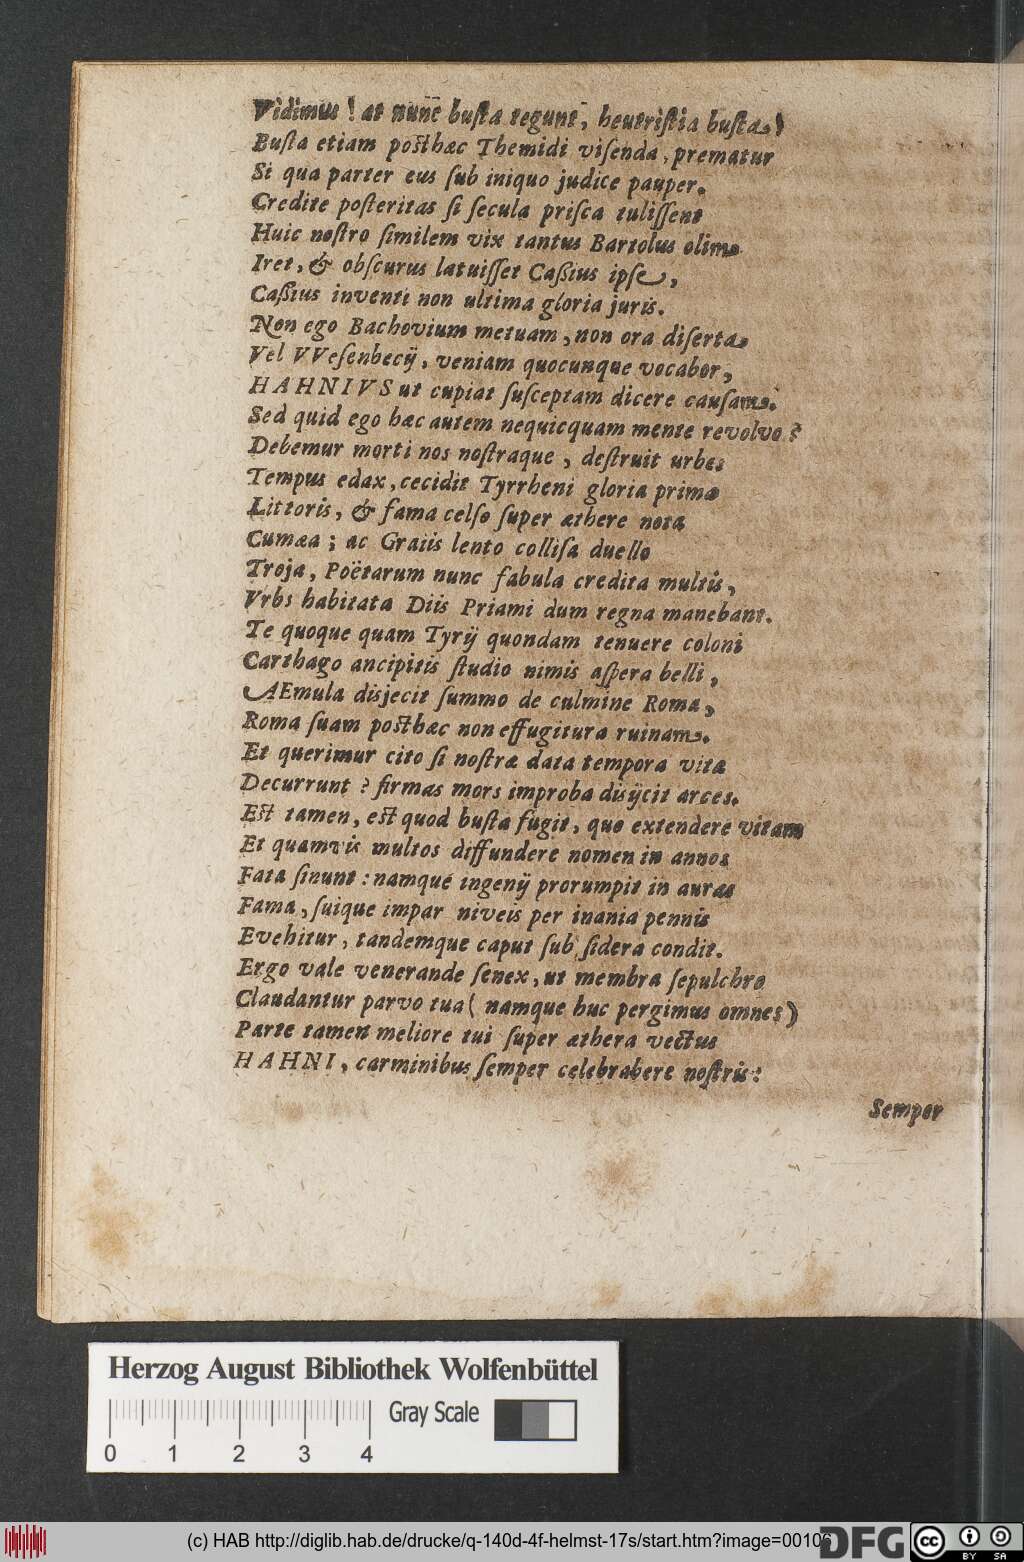 Vidimus! at nunc busta tegunt, heu tristia busta!
Busta etiam posthæc Themidi visenda, prematur
Si qua parter eus sub iniquo judice pauper.
Credite posteritas si secula prisca tulissent
Huic nostro similem vix tantus Bartolus olim
Iret, & obscurus latuisset Caßius ipse,
Caßius inventi non ultima gloria juris.
Non ego Bachovium metuam, non ora diserta
Vel VVesenbecij, veniam quocunque vocabor,
HAHNIVS ut cupiat susceptam dicere causam.
Sed quid ego hæc autem nequicquam mente revolvo?
Debemur morti nos nostraque, destruit urbes
Tempus edax, cecidit Tyrrheni gloria prima
Littoris, & fama celso super æthere nota
Cumæa; ac Graiis lento collisa duello
Troja, Poëtarum nunc fabula credita multis,
Vrbs habitata Diis Priami dum regna manebant.
Te quoque quam Tyrij quondam tenuere coloni
Carthago ancipitis studio nimis aspera belli,
AEmula disjecit summo de culmine Roma,
Roma suam posthæc non effugitura ruinam.
Et querimur cito si nostræ data tempora vitæ
Decurrunt? firmas mors improba disijcit arces.
Est tamen, est quod busta fugit, quo extendere vitam
Et quamvis multos diffundere nomen in annos
Fata sinunt: namque ingenij prorumpit in auras
Fama, suique impar niveis per inania pennis
Evehitur, tandemque caput sub sidera condit.
Ergo vale venerande senex, ut membra sepulchro
Claudantur parvo tua (namque huc pergimus omnes)
Parte tamen meliore tui super æthera vectus
HAHNI, carminibus semper celebrabere nostris:
Semper
Herzog August Bibliothek Wolfenbüttel
Gray Scale
0 1 2 3 4
(c) HAB http://diglib.hab.de/drucke/q-140d-4f-helmst-17s/start.htm?image=00106
DFG cc BY SA